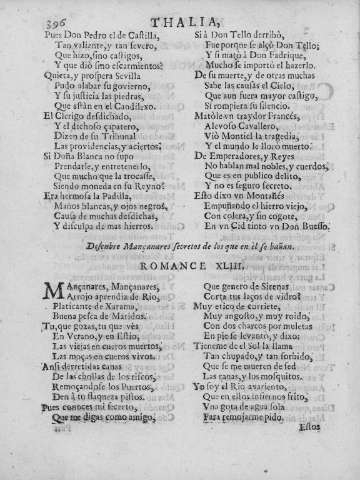 396 THALIA,
Pues Don Pedro el de Castilla,
Tan valiente, y tan severo,
Que hizo, sino castigos,
Y que diò sino escarmientos?
Quieta, y prospera Sevilla
Pudo alabar su govierno,
Y su justicia las piedras,
Que estàn en el Candilexo.
El Clerigo desdichado,
Y el dichoso çapatero,
Dizen de su Tribunal
Las providencias, y aciertos?
Si Doña Blanca no supo
Prendarle, y entretenerlo,
Que mucho que la trocasse,
Siendo moneda en su Reyno?
Era hermosa la Padilla,
Manos blancas, y ojos negros,
Causa de muchas desdichas,
Y disculpa de mas hierros.
Si à Don Tello derribò,
Fue porque se alçò Don Tello;
Y si matò à Don Fadrique,
Mucho se importò el hazerlo.
De su muerte, y de otras muchas
Sabe las causas el Cielo,
Que aun fuera mayor castigo,
Si rompiera su silencio.
Matòle vn traydor Francés,
Alevoso Cavallero,
Viò Montiel la tragedia,
Y el mundo le lloro muerto?
De Emperadores, y Reyes
No hablan mal nobles, y cuerdos,
Que es en publico delito,
Y no es seguro secreto.
Esto dixo vn Montañés
Empuñando el hierro viejo,
Con colera, y sin cogote,
En vn Cid tinto vn Don Bueso.
Descubre Mançanares secretos de los que en èl se bañan.
ROMANCE XLIII.
Mançanares, Mançanares,
Arroyo aprendiz de Rio,
Platicante de Xarama,
Buena pesca de Maridos.
Tu, que gozas, tu que vès
En Verano, y en Estio,
Las viejas en cueros muertos,
Las moças en cueros vivos.
Ansi derretidas canas
De las chollas de los riscos,
Remoçandose los Puertos,
Den à tu flaqueza pistos.
Pues conoces mi secreto,
Que me digas como amigo,
Que genero de Sirenas
Corta tus laços de vidro?
Muy etico de corriete,
Muy angosto, y muy roido,
Con dos charcos por muletas
En pie se levantò, y dixo:
Tieneme de el Sol la llama
Tan chupado, y tan sorbido,
Que se me mueren de sed
Las ranas, y los mosquitos.
Yo soy el Rio avariento,
Que en estos infiernos frito,
Vna gota de agua sola
Para remojarme pido.
Estos